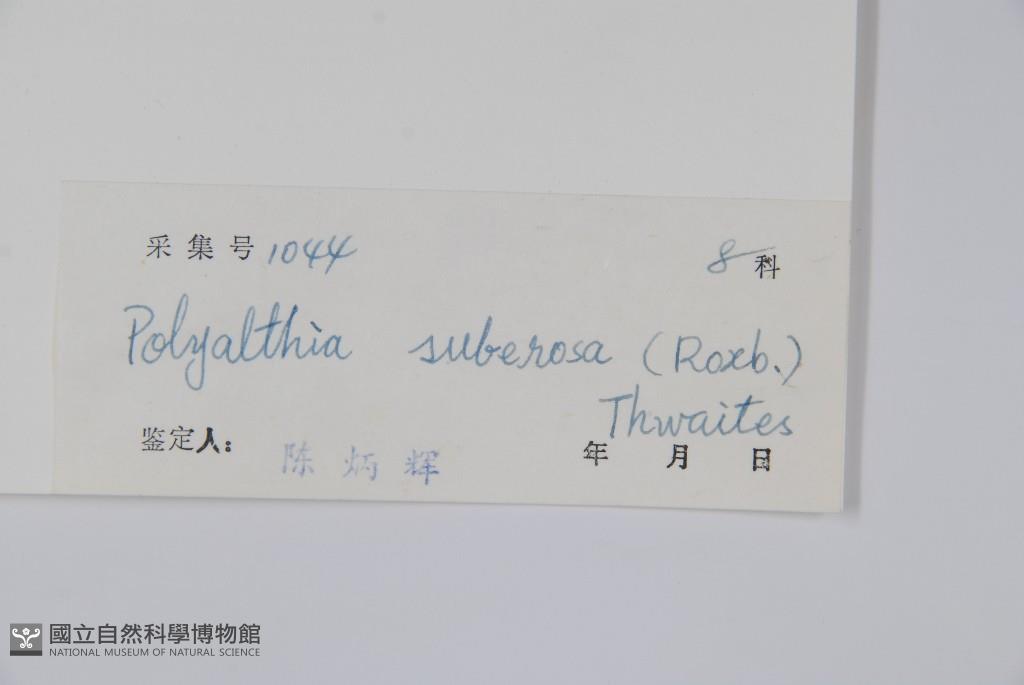 采集号 1044 8 科
Polyalthia suberosa (Roxb.)
Thwaites
鉴定人: 陈炳辉 年 月 日
國立自然科學博物館
NATIONAL MUSEUM OF NATURAL SCIENCE